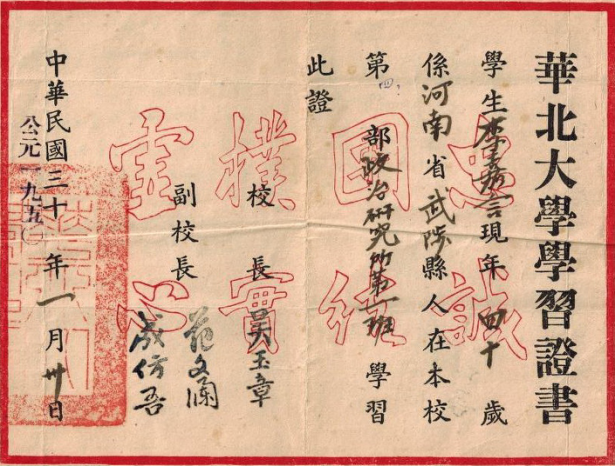 華北大學學習證書
學生李嘉言現年四十歲
係河南省武陟縣人在本校
第四部政治研究所第一班學習
此證
校長吳玉章
副校長范文瀾
成仿吾
中華民國三十
公元一九五〇年一月卅日
忠誠
團結
樸實
虛心